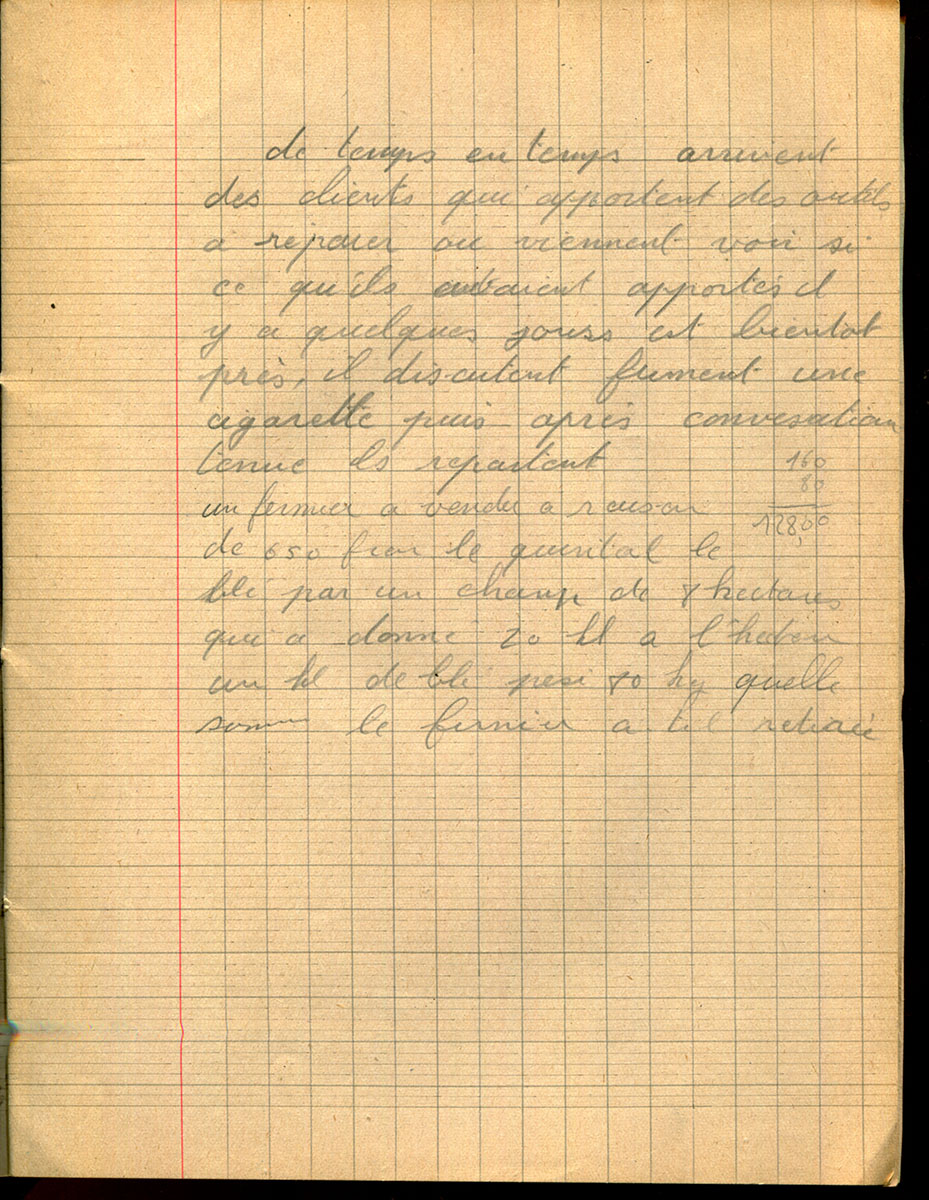 de temps en temps arrivent
des clients qui apportent des outils
a reparer ou viennent voir si
ce qu'ils avaient apportés il
y a quelques jours est bientot
près, il discutent fument une
cigarette puis après convesation
tenue ils repartent
160
80
12800
un fermier a vendu a raison
de 650 fran le quintal le
blé par un champ de 8 hectares
qui a donné 20 hl a l'hectare
un hl de blé pesé 80 kg quelle
somme le fermier a til retiré